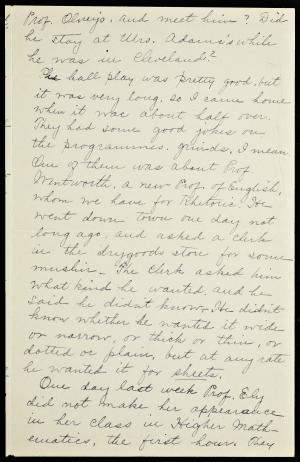 Prof. Olney's, and meet him? Did
he stay at Mrs. Adams's while
he was in Cleveland?
The hall play was pretty good, but
it was very long, so I came home
when it was about half over.
They had some good jokes on
the programmes, grinds, I mean.
One of them was about Prof.
Wentworth, a new Prof. of English,
whom we have for Rhetoric. He
went down town one day not
long ago, and asked a clerk
in the drygoods store for some
muslin. The clerk asked him
what kind he wanted, and he
said he didn't know. He didn't
know whether he wanted it wide
or narrow, or thick or thin, or
dotted or plain, but at any rate
he wanted it for sheets.
One day last week Prof. Ely
did not make her appearance
in her class in Higher Math-
ematics, the first hour. They